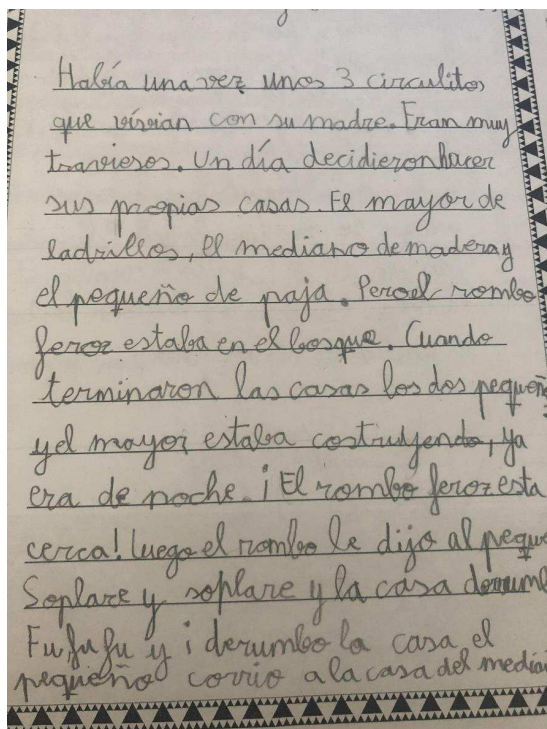 Había una vez unos 3 circulitos
que vivian con su madre. Eran muy
traviesos. Un día decidieron hacer
sus propias casas. El mayor de
ladrillos, el mediano de madera y
el pequeño de paja. Pero el rombo
feroz estaba en el bosque. Cuando
terminaron las casas los dos pequeñ
y el mayor estaba costruyendo, ya
era de noche. ¡El rombo feroz esta
cerca! luego el rombo le dijo al peque
Soplare y soplare y la casa derrum
Fu fu fu y ¡ derumbo la casa el
pequeño corrio a la casa del media